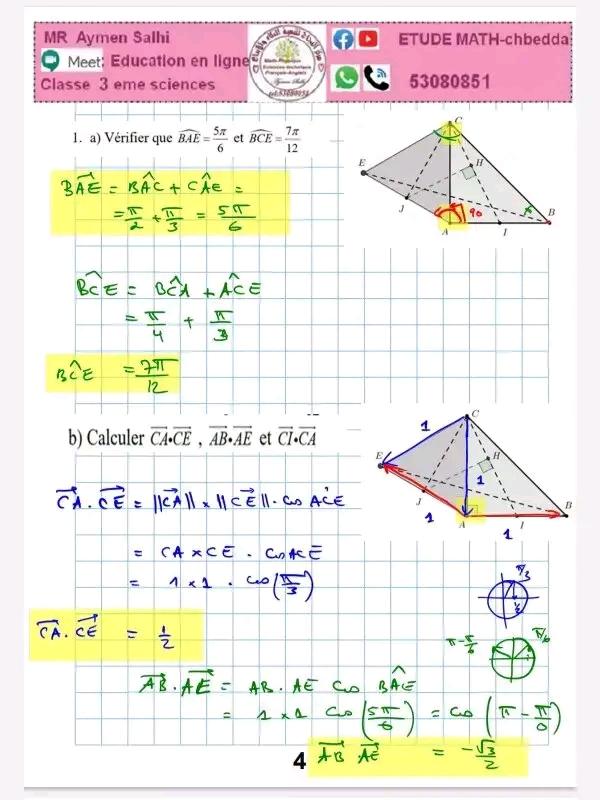 MR Aymen Salhi
Meet: Education en ligne
Classe 3 eme sciences
ETUDE MATH-chbedda
53080851
1. a) Vérifier que BAE = 5π/6 et BCE = 7π/12
BAE = BAC + CAE =
= π/2 + π/3 = 5π/6
BCE = BCA + ACE
= π/4 + π/3
BCE = 7π/12
C
E
H
J
90
A
I
B
b) Calculer CA•CE , AB•AE et CI•CA
CA . CE = ||CA|| x ||CE|| . cos ACE
= CA x CE . cos ACE
= 1 x 1 . cos(π/3)
CA . CE = 1/2
C
1
E
H
1
J
1
A
I
B
1
π/3
1/2
π-π/6
π/6
AB . AE = AB . AE cos BAE
= 1 x 1 cos(5π/6) = cos(π - π/6)
AB AE = -√3/2
4